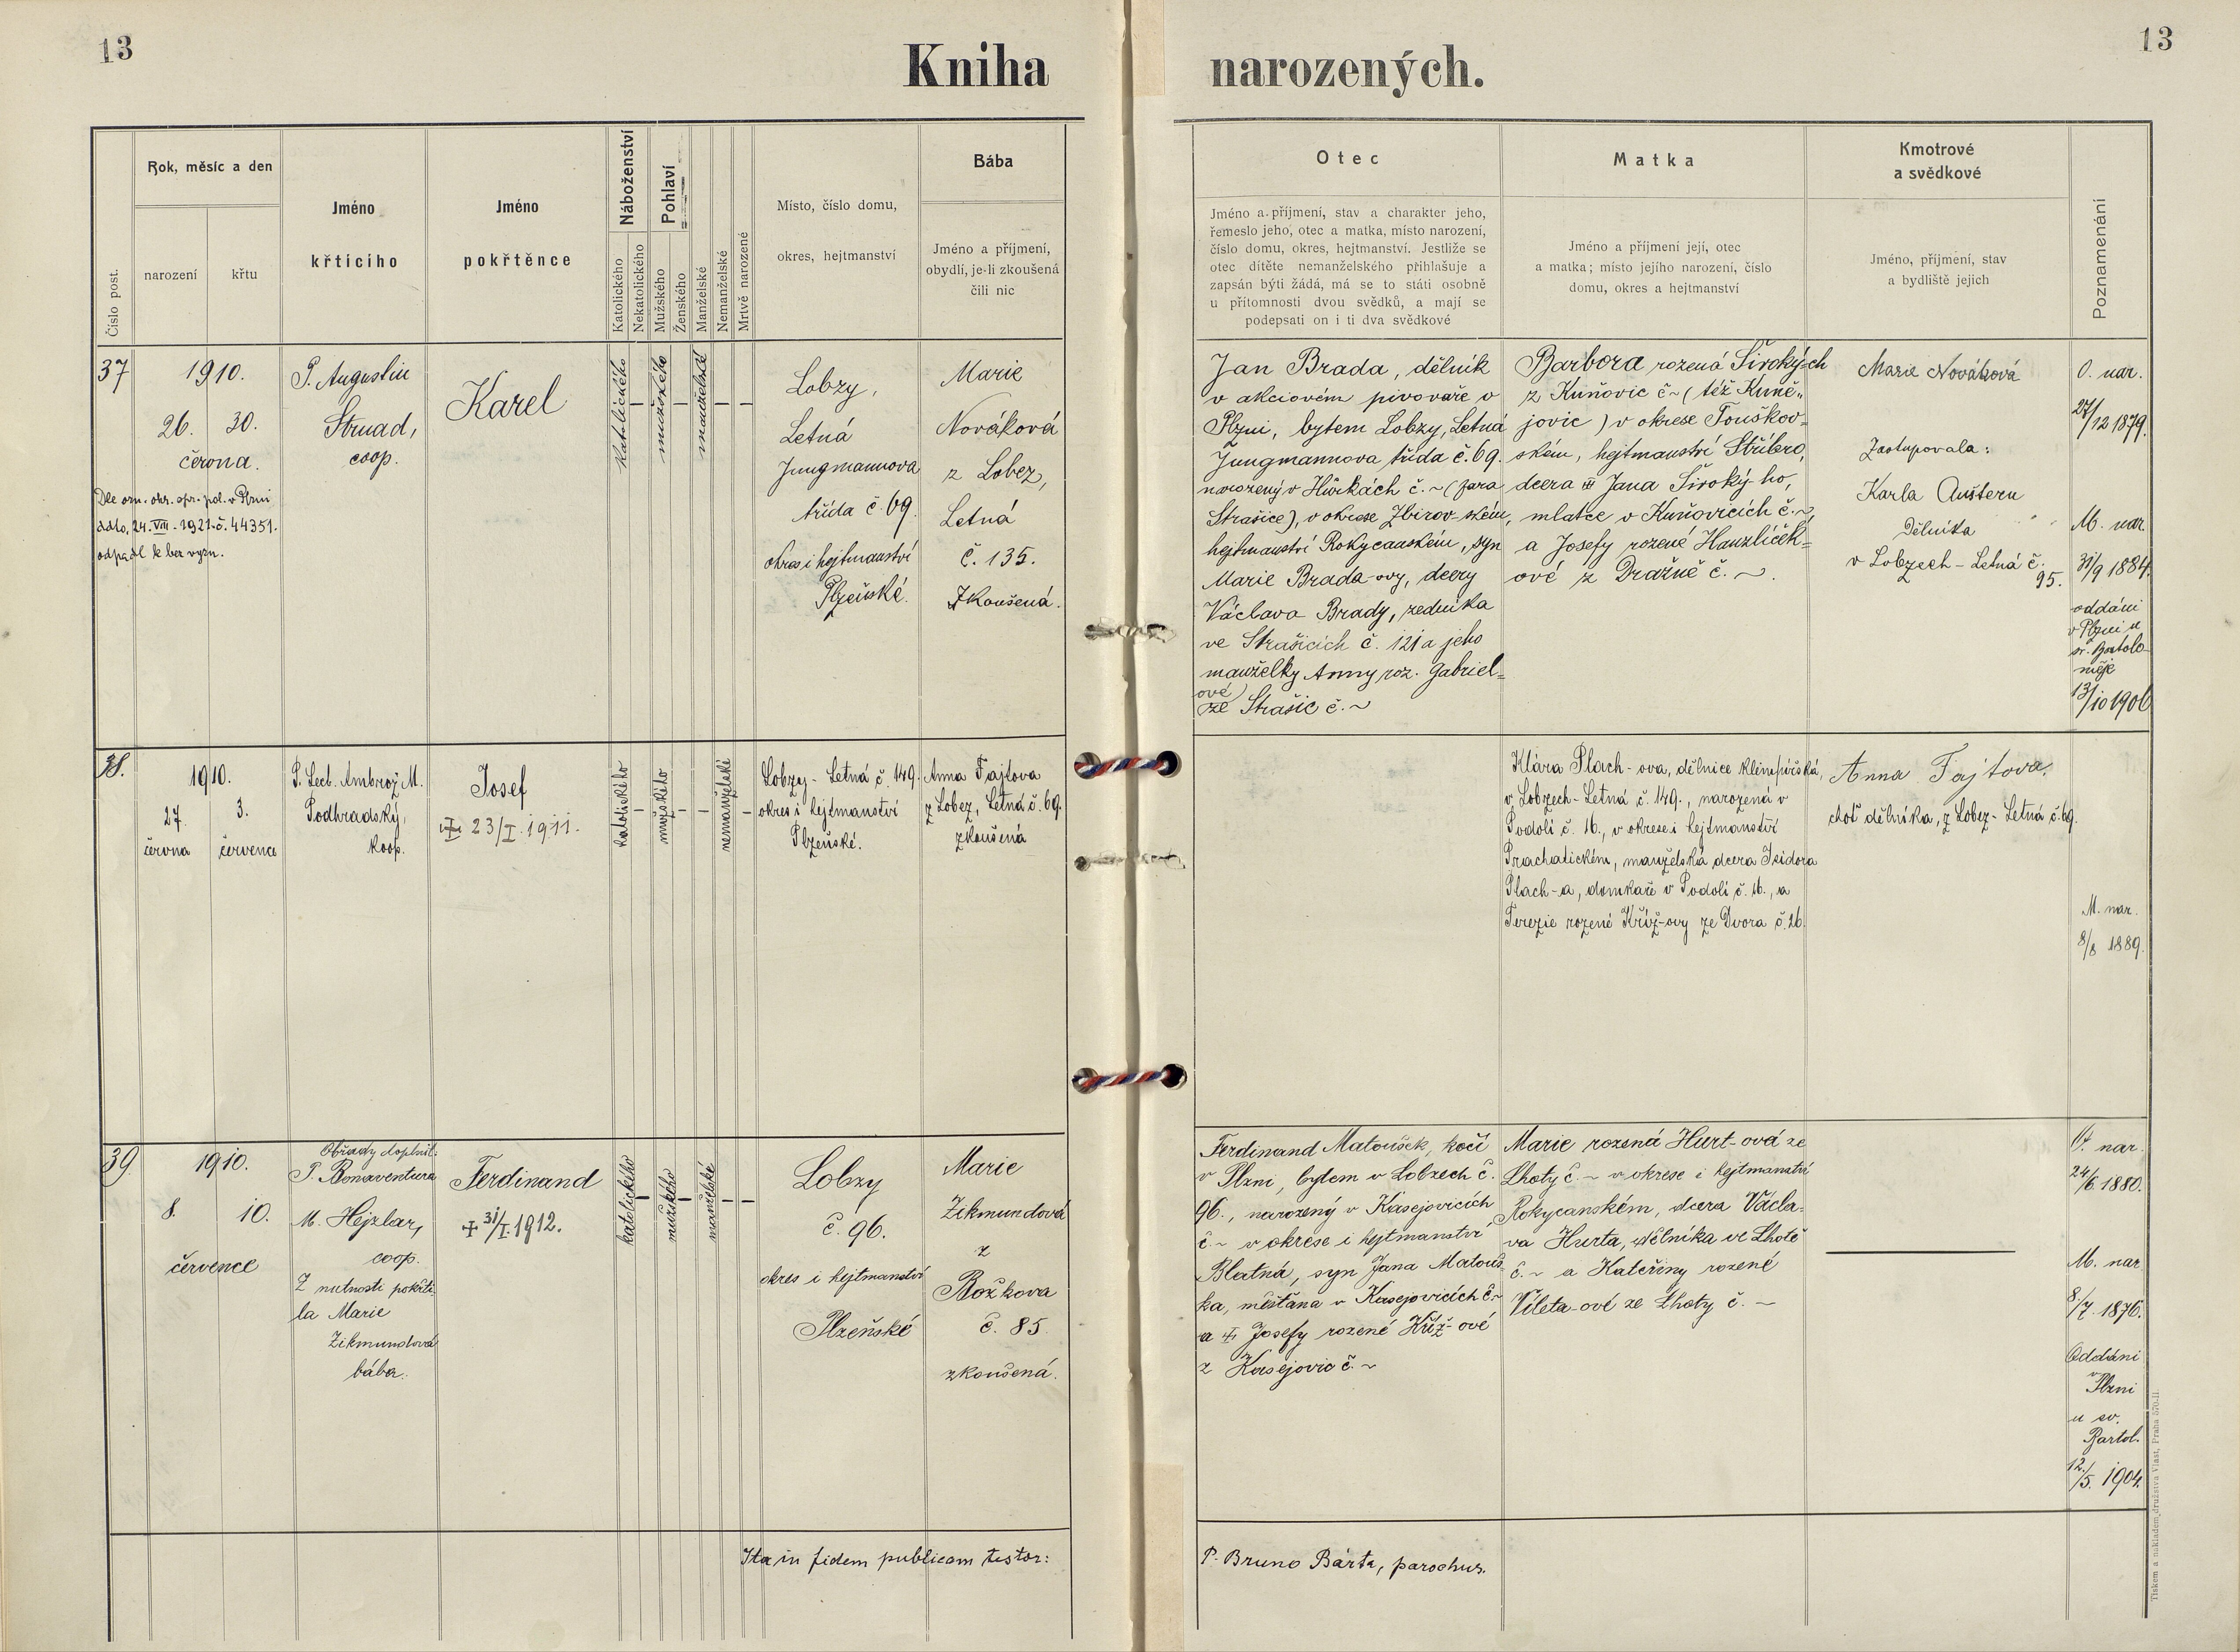 13
Kniha narozených.
13
Číslo post.
Rok, měsíc a den
narození
křtu
Jméno
křticího
Jméno
pokřtěnce
Náboženství
Katolického
Nekatolického
Pohlaví
Mužského
Ženského
Manželské
Nemanželské
Mrtvě narozené
Místo, číslo domu,
okres, hejtmanství
Bába
Jméno a příjmení,
obydlí, je-li zkoušená
čili nic
Otec
Jméno a příjmení, stav a charakter jeho,
řemeslo jeho, otec a matka, místo narození,
číslo domu, okres, hejtmanství. Jestliže se
otec dítěte nemanželského přihlašuje a
zapsán býti žádá, má se to státi osobně
u přítomnosti dvou svědků, a mají se
podepsati on i ti dva svědkové
Matka
Jméno a příjmení její, otec
a matka; místo jejího narození, číslo
domu, okres a hejtmanství
Kmotrové
a svědkové
Jméno, příjmení, stav
a bydliště jejich
Poznamenání
37
1910.
26. 30.
června.
Dle ozn. okr. spr. pol. v Plzni
ddto, 24. VIII. 1921 č. 44351.
odpadl k bez vyzn.
P. Augustin
Strnad,
coop.
Karel
katolického
mužského
manželské
Lobzy,
Letná
Jungmannova
třída č. 69.
okres i hejtmanství
Plzeňské.
Marie
Nováková
z Lobez,
Letná
č. 135.
Zkoušená.
Jan Brada, dělník
v akciovém pivovaře v
Plzni, bytem Lobzy, Letná
Jungmannova třída č. 69.
narozený v Hůrkách č. ~ (fara
Strašice), v okrese Zbirov-ském,
hejtmanství Rokycanském, syn
Marie Brada-ovy, dcery
Václava Brady, zedníka
ve Strašicích č. 121 a jeho
manželky Anny roz. Gabriel=
ové)
ze Strašic č. ~
Barbora rozená Široký=ch
z Kuňovic č ~ ( též Kuně„
jovic ) v okrese Touškov=
ském, hejtmanství Stříbro,
dcera Jana Široký-ho,
mlatce v Kuňovicích č. ~,
a Josefy rozené Hanzlíček=
ové z Dražně č. ~.
Marie Nováková
Zastupovala:
Karla Aušteru
Dělníka
v Lobzech - Letná č.
95.
O. nar.
27/12 1879.
M. nar.
31/9 1884.
oddáni
v Plzni u
sv. Bartolo-
měje
13/10 1906
38.
1910.
27. 3.
června července
P. Lect. Ambrož M.
Podhradský,
koop.
Josef
23/I. 1911.
katolického
mužského
nemanželské
Lobzy - Letná č. 149.
okres i hejtmanství
Plzeňské.
Anna Fajtova
z Lobez, Letná č. 69.
zkoušená
Klára Plach-ova, dělnice
v Lobzech - Letná č. 149., narozená v
Podolí č. 16., v okrese i hejtmanství
Prachatickém, manželská dcera Isidora
Plach-a, domkaře v Podolí č. 16., a
Terezie rozené Kříž-ovy ze Dvora č. 26.
Anna Fajtova,
choť dělníka, z Lobez - Letná č. 69.
M. nar.
8/8 1889.
39.
1910.
8. 10.
července
Obřady doplnil:
P. Bonaventura
M. Hejzlar,
coop.
Z nutnosti pokřti-
la Marie
Zikmundová
bába.
Ferdinand
31/I. 1912.
katolického
mužského
manželské
Lobzy
č. 96.
okres i hejtmanství
Plzeňské
Marie
Zikmundová
z
Božkova
č. 85
zkoušená.
Ferdinand Matoušek, kočí
v Plzni, bytem v Lobzech č.
96., narozený v Kasejovicích
č. ~ v okrese i hejtmanství
Blatná, syn Jana Matouš-
ka, měšťana v Kasejovicích č. ~
a Josefy rozené Kříž-ové
z Kasejovic č. ~
Marie rozená Hurt-ová ze
Lhoty č. ~ v okrese i hejtmanství
Rokycanském, dcera Václa-
va Hurta, dělníka ve Lhotě
č. ~ a Kateřiny rozené
Vileta-ové ze Lhoty č. ~
O. nar.
24/6. 1880.
M. nar
8./7. 1876.
Oddáni
v Plzni
u sv.
Bartol.
12./5. 1904.
Ita in fidem publicam testor:
P. Bruno Bárta, parochus.
Tiskem a nákladem družstva Vlast, Praha 570-II.